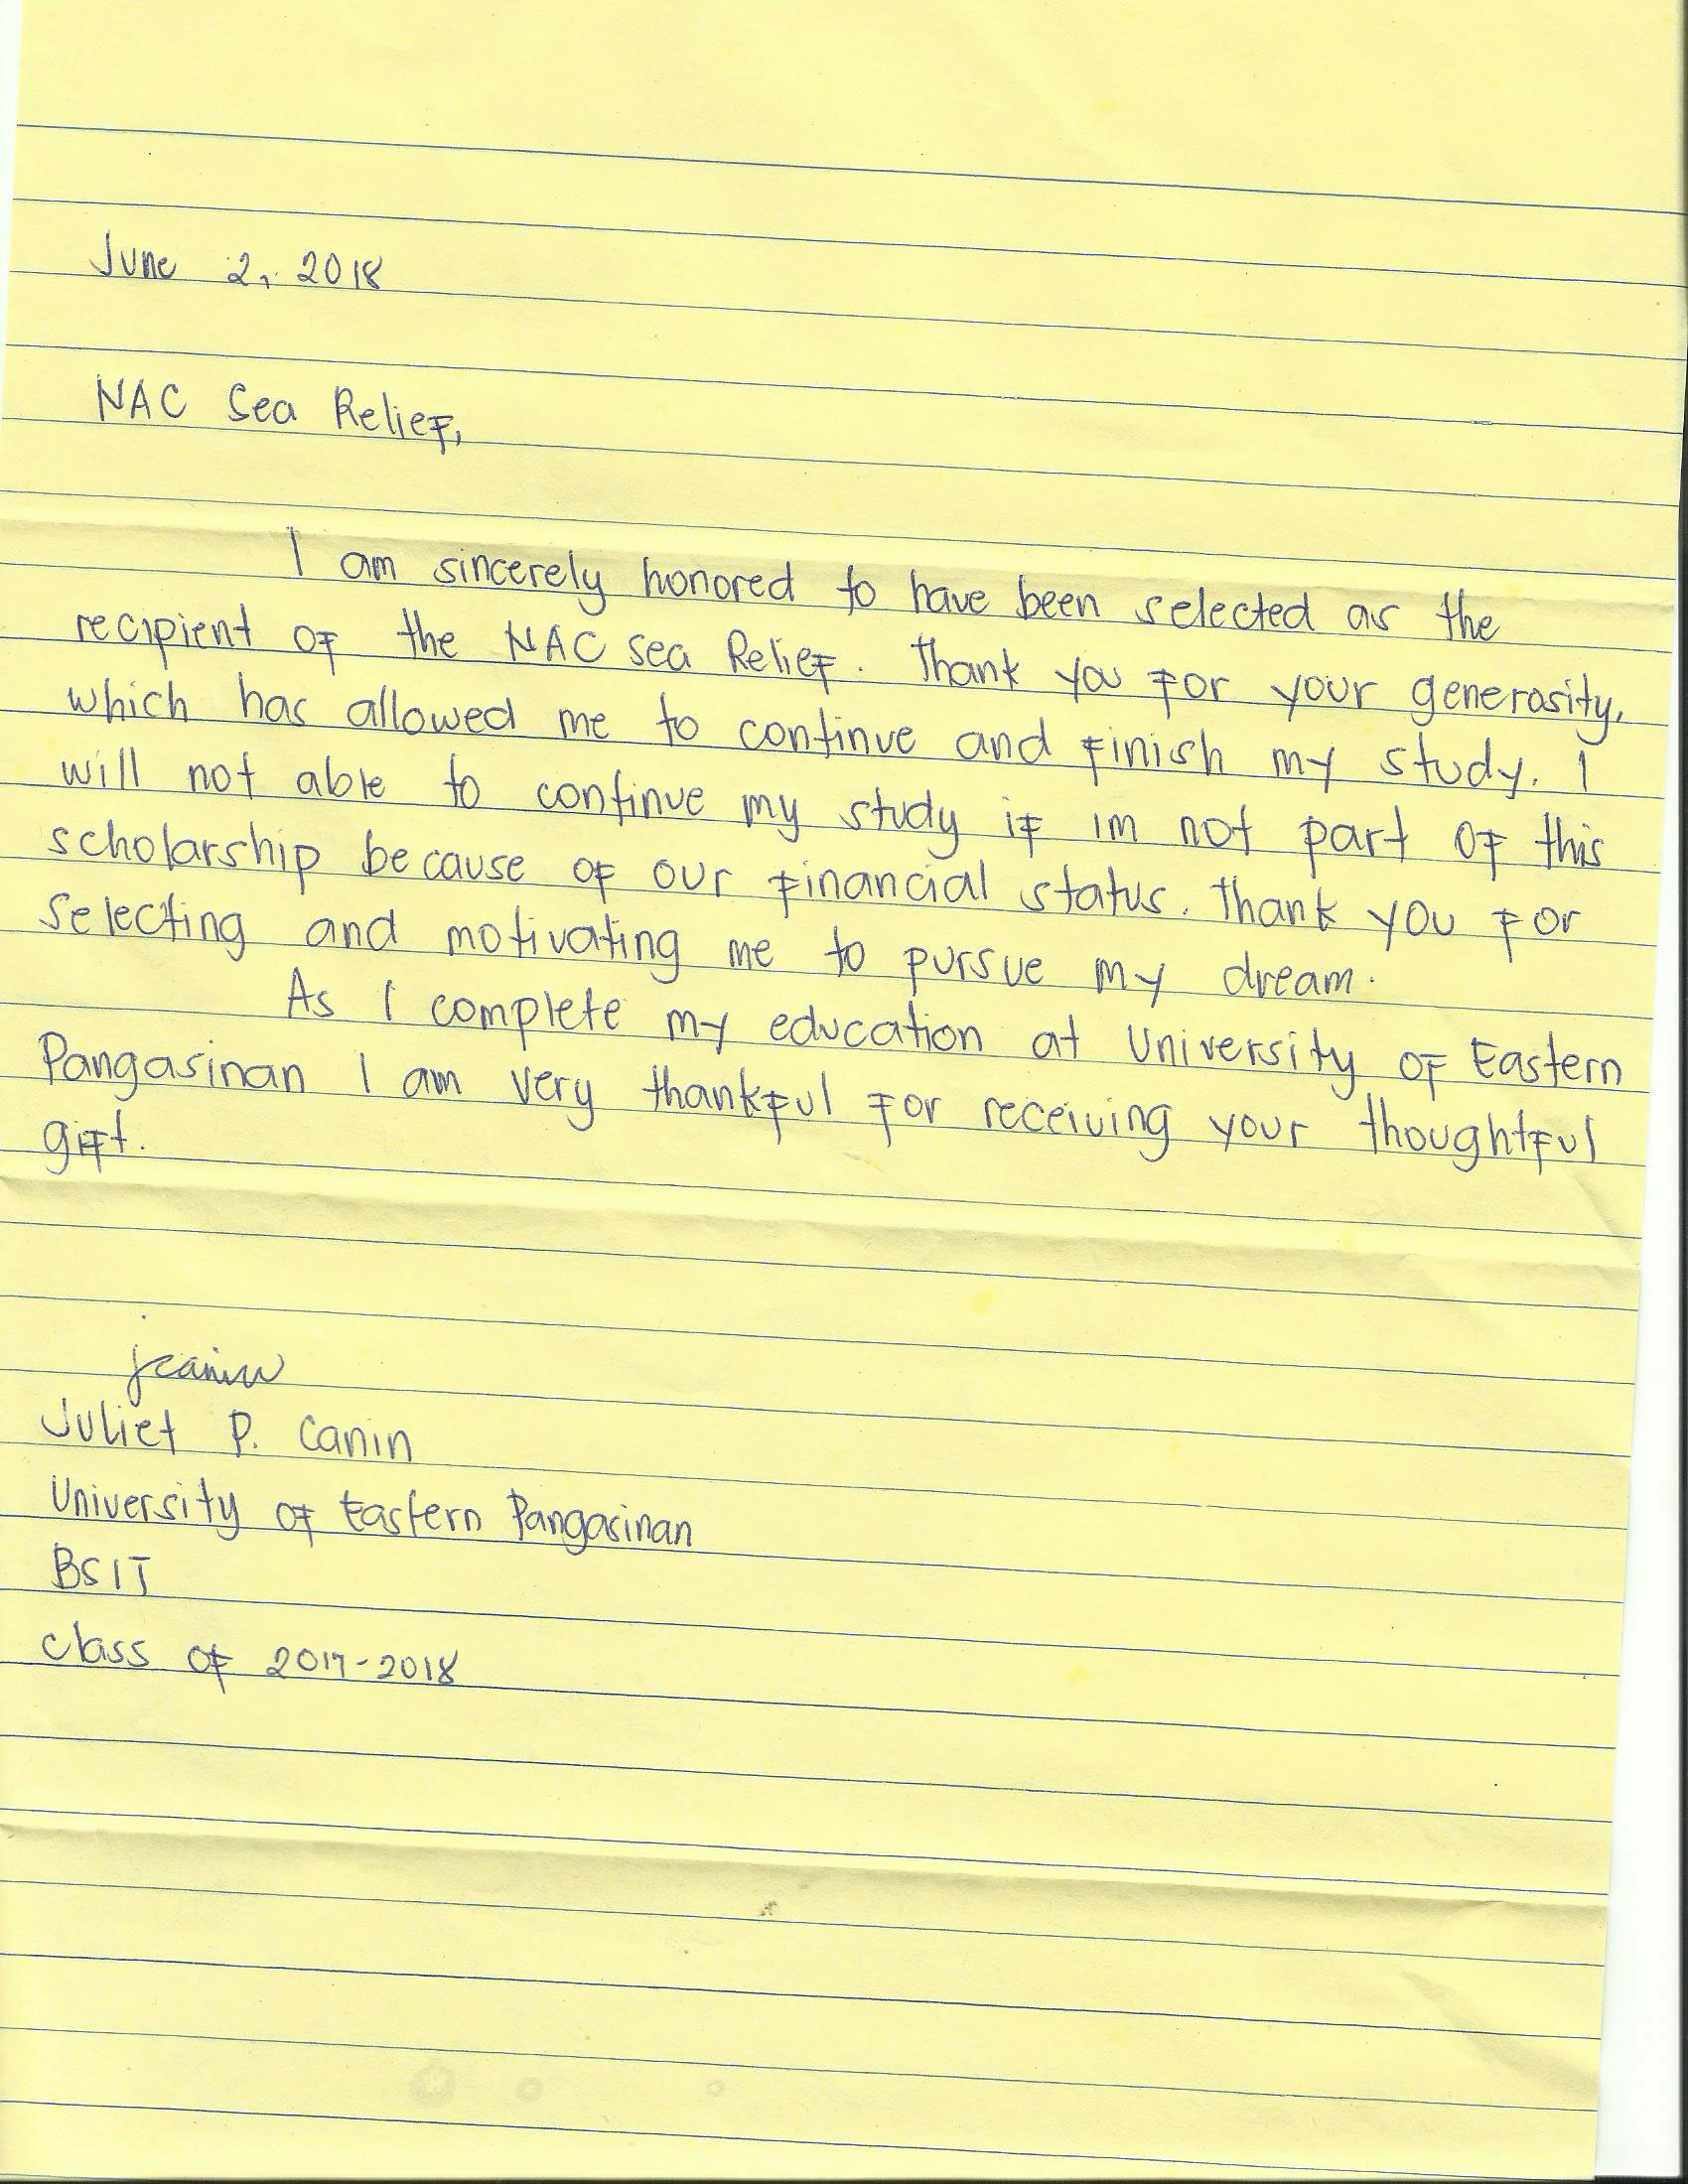 June 2, 2018
NAC Sea Relief,
I am sincerely honored to have been selected as the
recipient of the NAC Sea Relief. Thank you for your generosity,
which has allowed me to continue and finish my study. I
will not able to continue my study if im not part of this
scholarship because of our financial status. Thank you for
selecting and motivating me to pursue my dream.
As I complete my education at University of Eastern
Pangasinan I am very thankful for receiving your thoughtful
gift.
jcanin
Juliet P. Canin
University of Eastern Pangasinan
BSIT
class of 2017-2018